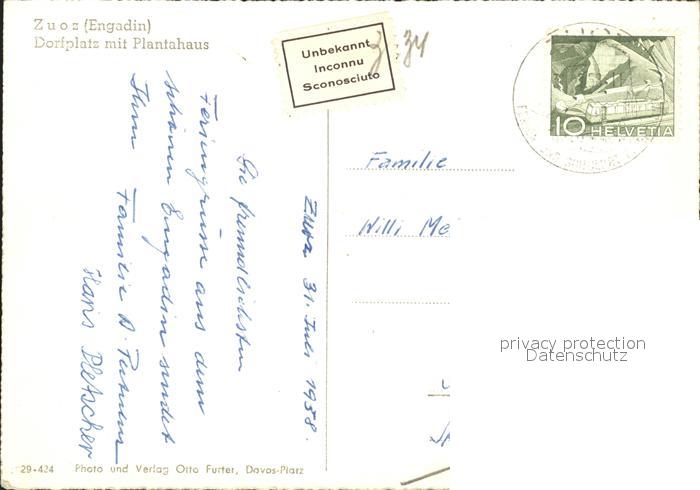 Zuoz (Engadin)
Dorfplatz mit Plantahaus
Unbekannt
Inconnu
Sconosciuto
10 HELVETIA
Zuoz 31. Juli 1958.
Die freundlichsten
Feriengrüsse aus dem
schönen Engadin sendet
Ihnen Familie
Hans Pletscher
Familie
Willi Me
privacy protection
Datenschutz
29-424 Photo und Verlag Otto Furter, Davos-Platz